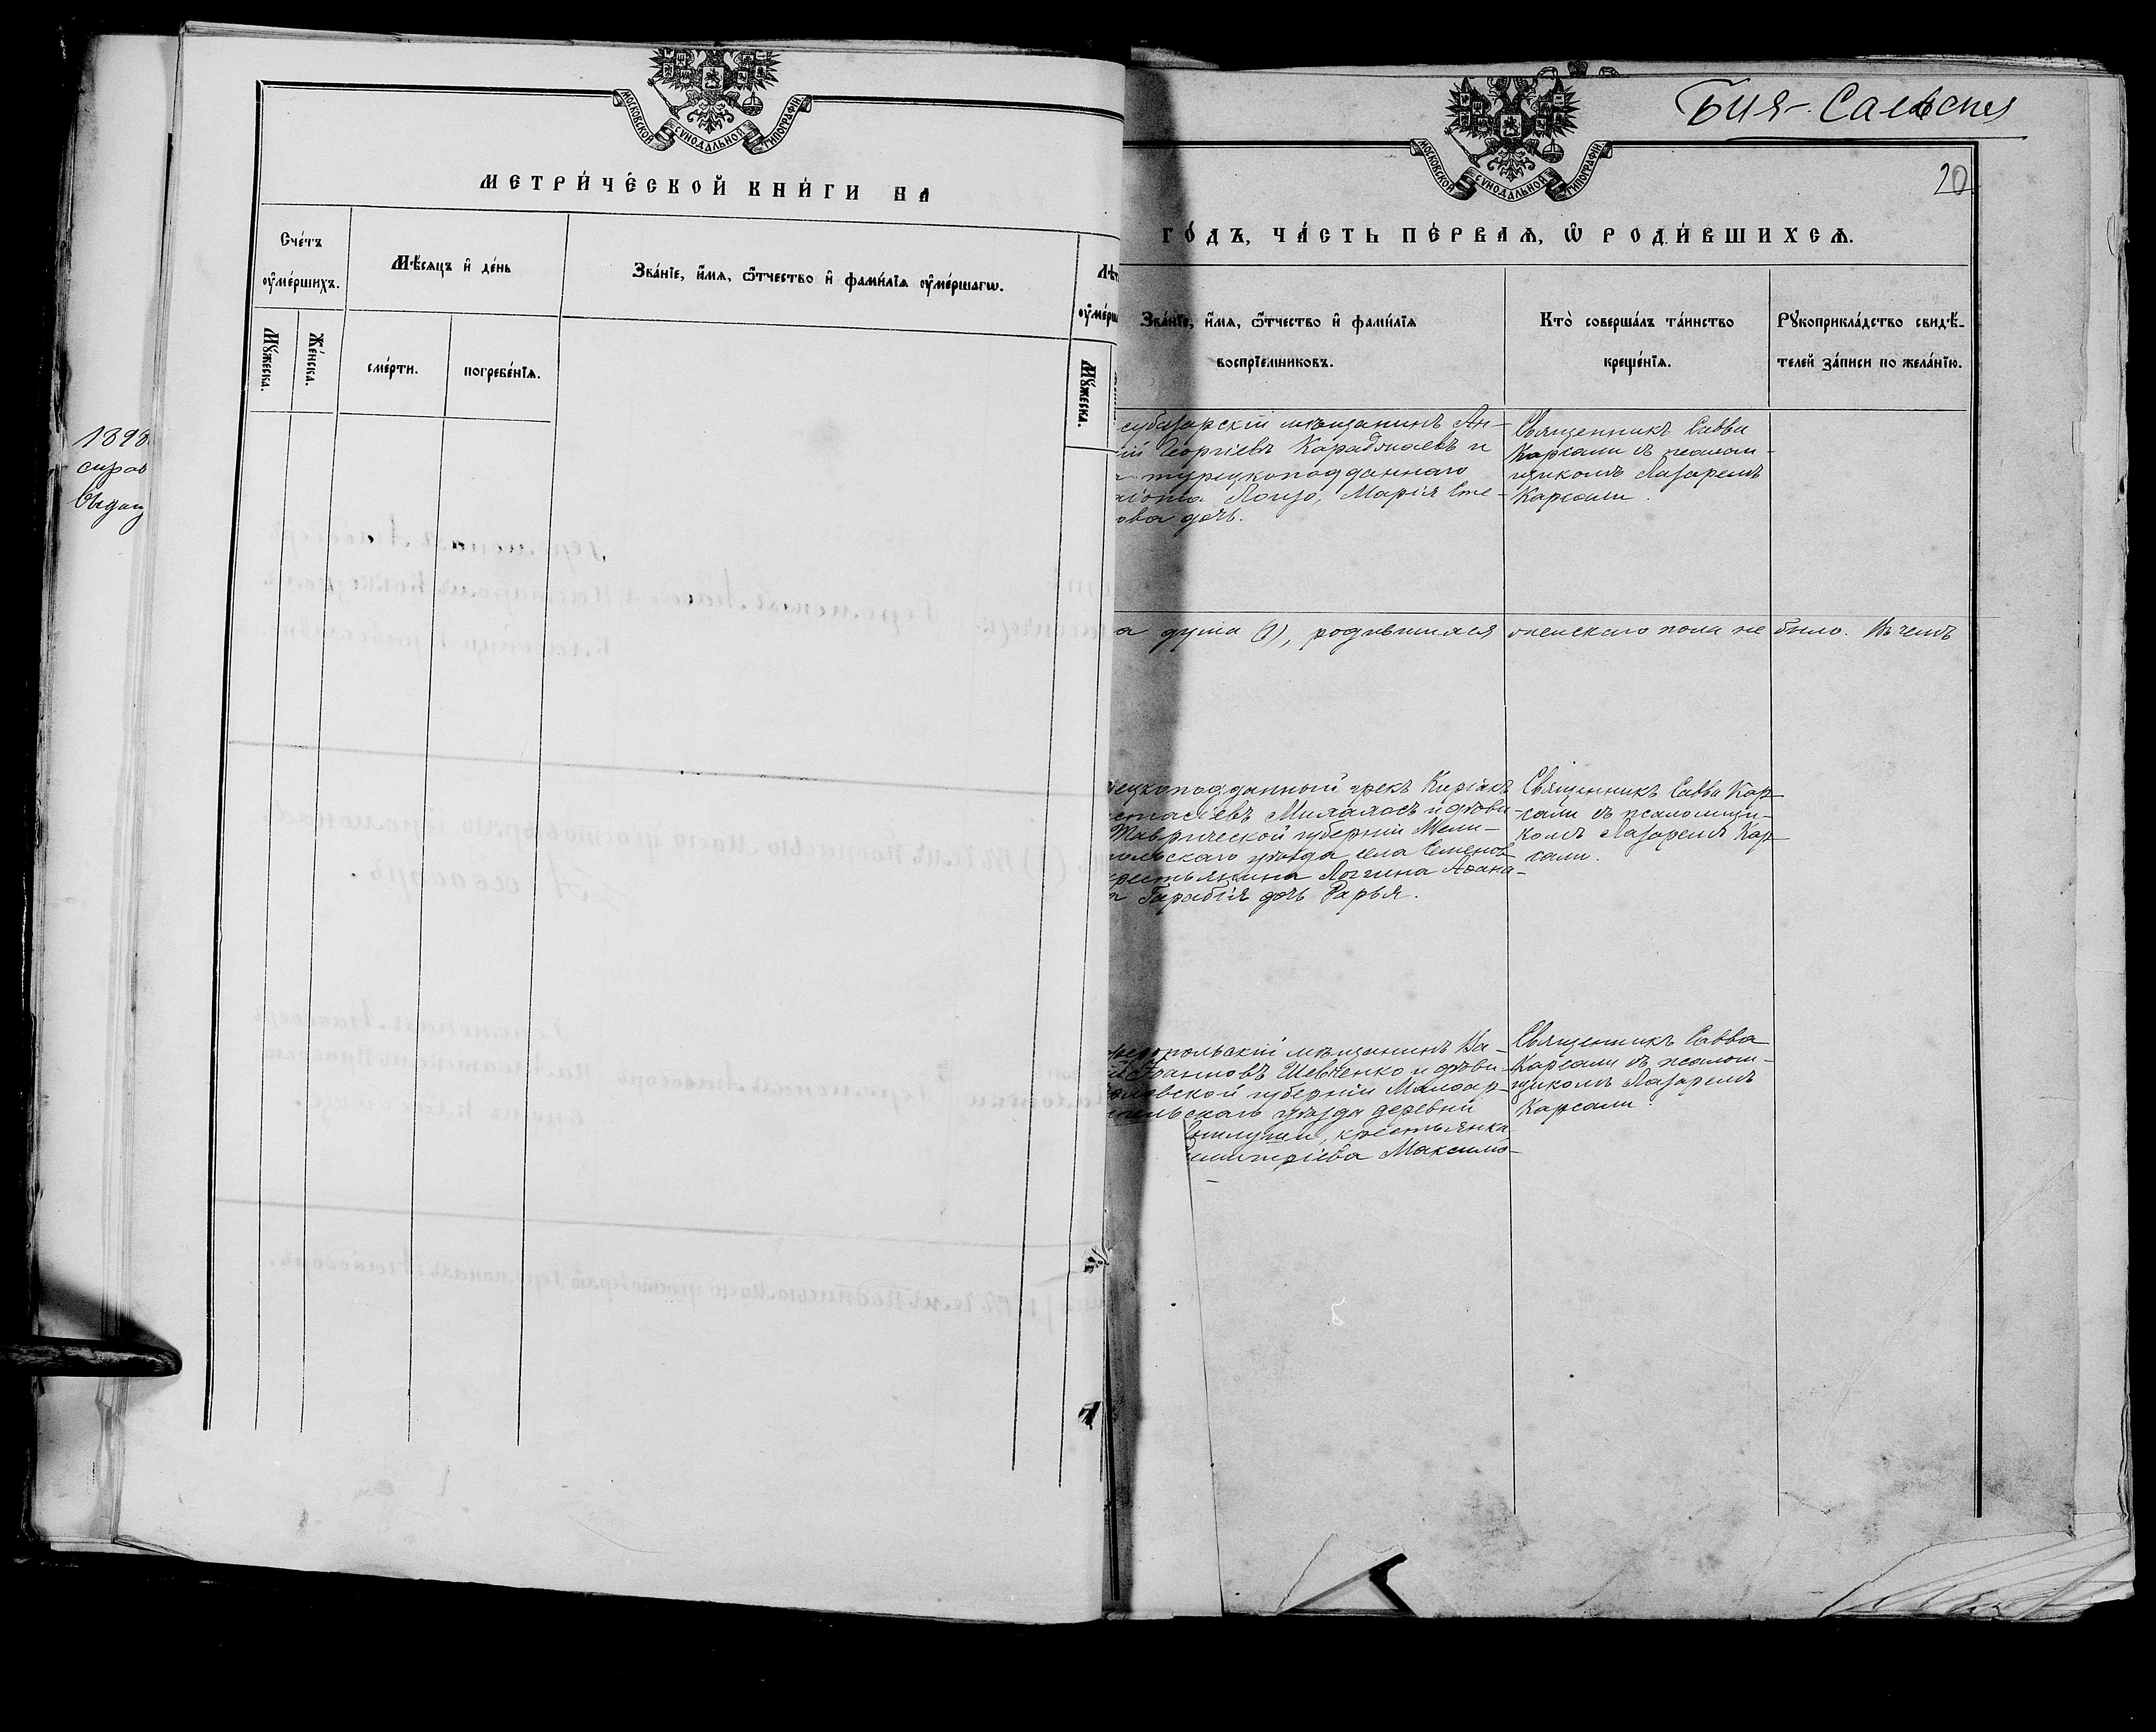 1898
справ
Выдан
МОСКОВСКОЙ СѴНОДАЛЬНОЙ ТИПОГРАФІИ
МЕТРИ́ЧЕСКОЙ КНИ́ГИ НА
Сче́тъ
ѹ҆ме́ршихъ.
Мѣ́сяцъ и҆ де́нь
Зва́нїе, и҆́мя, ѻ҆́тчество и҆ фами́лїя ѹ҆ме́ршагѡ.
Лѣт
ѹ҆ме́рш
Мꙋ́жеска.
Же́нска.
сме́рти.
погребе́нїя.
Мꙋ́жеска.
Бия-Сальская
20
МОСКОВСКОЙ СѴНОДАЛЬНОЙ ТИПОГРАФІИ
ГО́ДЪ, ЧА́СТЬ ПЕ́РВАѦ, Ѽ РОДИ́ВШИХСѦ.
Зва́нїе, и҆́мя, ѻ҆́тчество и҆ фами́лїя
воспрїе́мниковъ.
Кто̀ соверша́лъ та́инство
креще́нїя.
Рꙋкоприкла́дство свидѣ́-
телей за́писи по жела́нїю.
субазарскій мѣщанинъ Ан-
ій Георгіевъ Караджаевъ и
турецкоподданнаго
Марія Сте-
ова дочь.
Священникъ Савва
Карсали съ псалом-
щикомъ Лазаремъ
Карсали.
а душа (1), родившихся женскаго пола не было. Въ чемъ
ецкоподданный грекъ Киріакъ
астасіевъ Милалосъ и дѣви
Таврической губерніи Мели-
польскаго уѣзда села Семенов
крестьянина Логгина Аѳана-
а Гарабія дочь Дарья.
Священникъ Савва Кар-
сали съ псаломщи-
комъ Лазаремъ Кар-
сали.
феропольскій мѣщанинъ Ва-
ій Іоанновъ Шевченко и дѣви-
овской губерніи Малоар-
ельскаго уѣзда деревни
крестьянка
имитріева Максимо-
Священникъ Савва
Карсали съ псалом-
щикомъ Лазаремъ
Карсали.